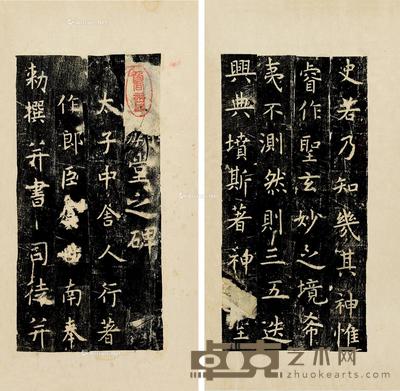 堂之碑
太子中舍人行著
作郎臣 南奉
勅撰并書司徒并
史若乃知幾其神惟
睿作聖玄妙之境希
夷不測然則三五迭
興典墳斯著神
卓克艺术网
zhuokearts.com